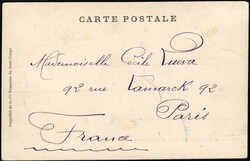 CARTE POSTALE
Mademoiselle Cécile
92 rue Lamarck 92
Paris
France